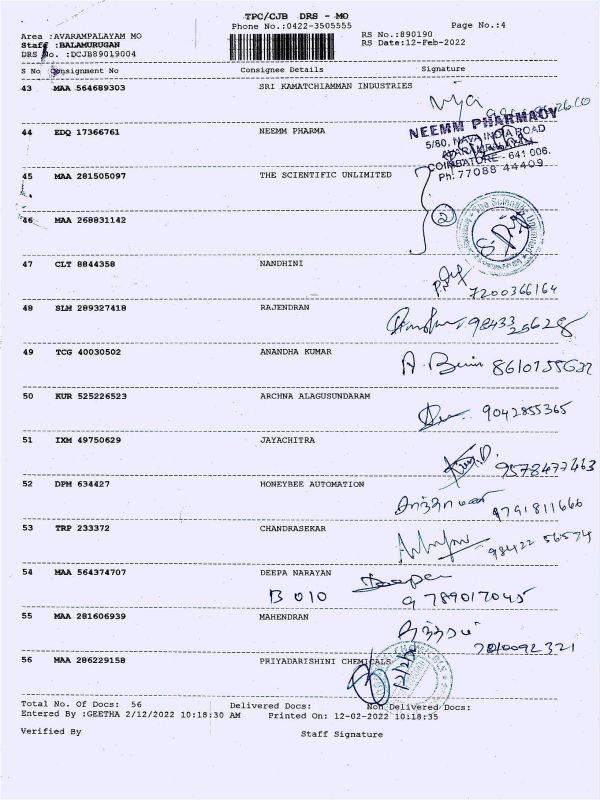 TPC/CJB DRS - MO
Phone No.:0422-3505555
Page No.:4
Area :AVARAMPALAYAM MO
RS No.:890190
Staff :BALAMURUGAN
RS Date:12-Feb-2022
DRS No. :DCJB89019004
S No Consignment No Consignee Details Signature
43 MAA 564689303 SRI KAMATCHIAMMAN INDUSTRIES
44 EDQ 17366761 NEEMM PHARMA
NEEMM PHARMACY
5/80, NAVA INDIA ROAD
AVARAMPALAYAM
COIMBATORE - 641 006.
Ph: 77088 44409
45 MAA 281505097 THE SCIENTIFIC UNLIMITED
46 MAA 268831142
2
The Scientific Unlimited
47 CLT 8844358 NANDHINI
7200366164
48 SLM 289327418 RAJENDRAN
49 TCG 40030502 ANANDHA KUMAR
50 KUR 525226523 ARCHNA ALAGUSUNDARAM
9042855365
51 IXM 49750629 JAYACHITRA
9578477463
52 DPM 634427 HONEYBEE AUTOMATION
9791811666
53 TRP 233372 CHANDRASEKAR
98422 56574
54 MAA 564374707 DEEPA NARAYAN
B 010
Deepa
9789017045
55 MAA 281606939 MAHENDRAN
56 MAA 286229158 PRIYADARISHINI CHEMICALS
Total No. Of Docs: 56 Delivered Docs: Non Delivered Docs:
Entered By :GEETHA 2/12/2022 10:18:30 AM Printed On: 12-02-2022 10:18:35
Verified By Staff Signature